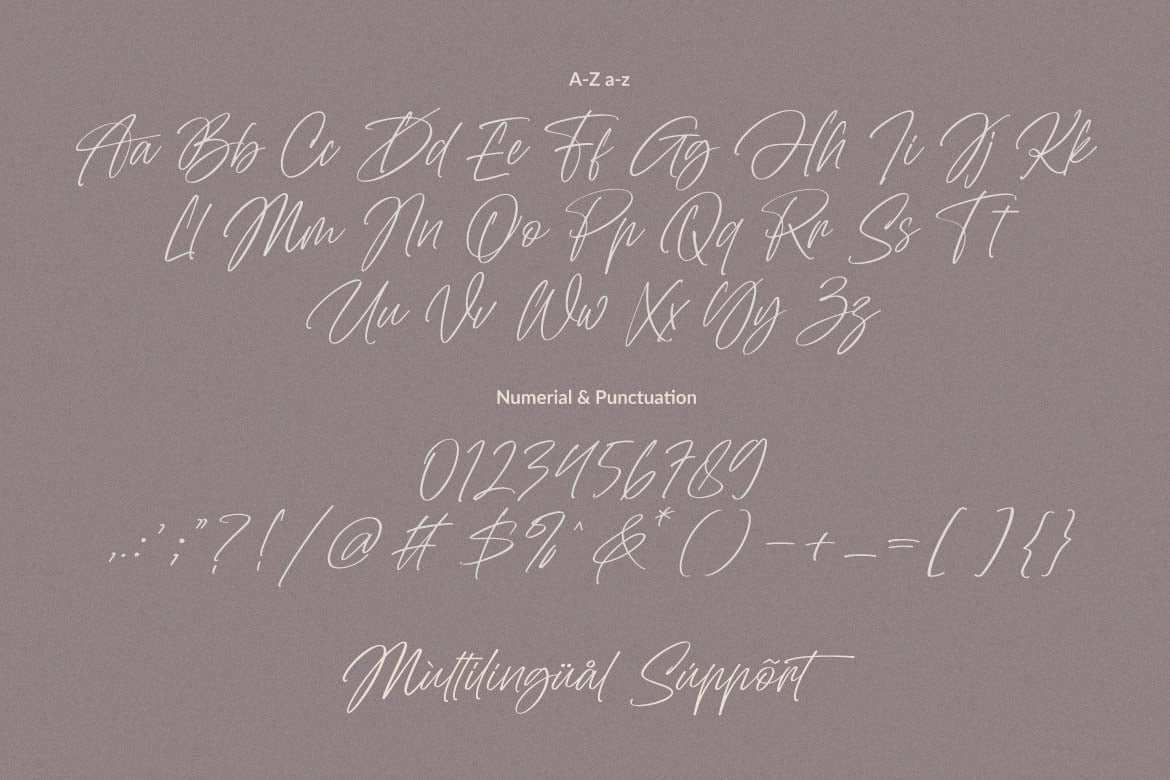 A-Z a-z
Aa Bb Cc Dd Ee Ff Gg Hh Ii Jj Kk
Ll Mm Nn Oo Pp Qq Rr Ss Tt
Uu Vv Ww Xx Yy Zz
Numerial & Punctuation
0123456789
,.:’;”?!/@#$%^&*()-+_=[]{}
Mùltilingüål Súppõrt